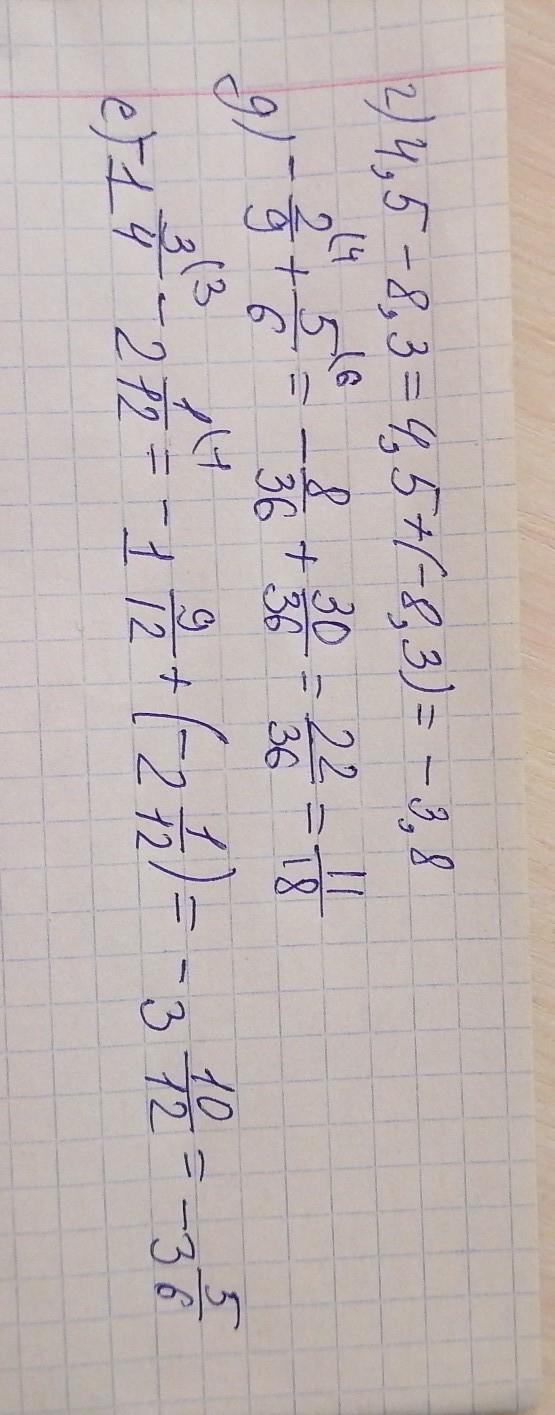 г) 4,5 - 8,3 = 4,5 + (-8,3) = -3,8
д) - 2/9 (4 + 5/6 (6 = - 8/36 + 30/36 = 22/36 = 11/18
е) -1 3/4 (3 - 2 1/12 (1 = -1 9/12 + (-2 1/12) = -3 10/12 = -3 5/6